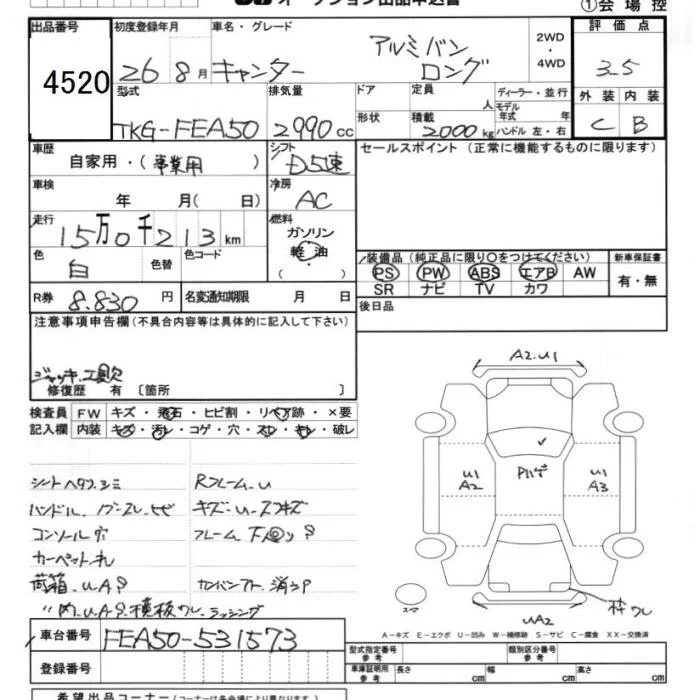 オークション出品申込書 ①会場控
出品番号 初度登録年月 車名・グレード 2WD・4WD 評価点
4520 26 8月 キャンター アルミバン ロング 3.5
型式 排気量 ドア 定員 人 ディーラー・並行 外装 内装
TKG-FEA50 2990cc 形状 積載 2000kg モデル年式 年 ハンドル 左・右 C B
車歴 自家用・(事業用) シフト D5速 セールスポイント (正常に機能するものに限ります)
車検 年 月( 日) 冷房 AC
走行 15万0千213km 燃料 ガソリン 軽油 ( ・ )
色 白 色替 色コード 装備品 (純正品に限り○をつけてください) 新車保証書
PS PW ABS エアB AW 有・無
SR ナビ TV カワ
R券 8.830円 名変通知期限 月 日 後日品
注意事項申告欄(不具合内容等は具体的に記入して下さい)
ジャッキ、工具欠
修復歴 有 〔箇所 〕
検査員 FW キズ・飛石・ヒビ割・リペア跡・×要
記入欄 内装 キズ・汚レ・コゲ・穴・スレ・キレ・破レ
A2.U1
シートヘタリ.シミ Rフレーム.U
U1 A2 U1 A3
コンソール穴
カーペット.キレ
荷箱.UAP
スペア UA2 枠ワレ
A-キズ E-エクボ U-凹み W-補修跡 S-サビ C-腐食 XX-交換済
車台番号 FEA50-531573 型式指定番号 参考 類別区分番号 参考
登録番号 車庫証明用 参考 長さ cm 幅 cm 高さ cm
希望出品コーナー (コーナーは各会場により異なります)